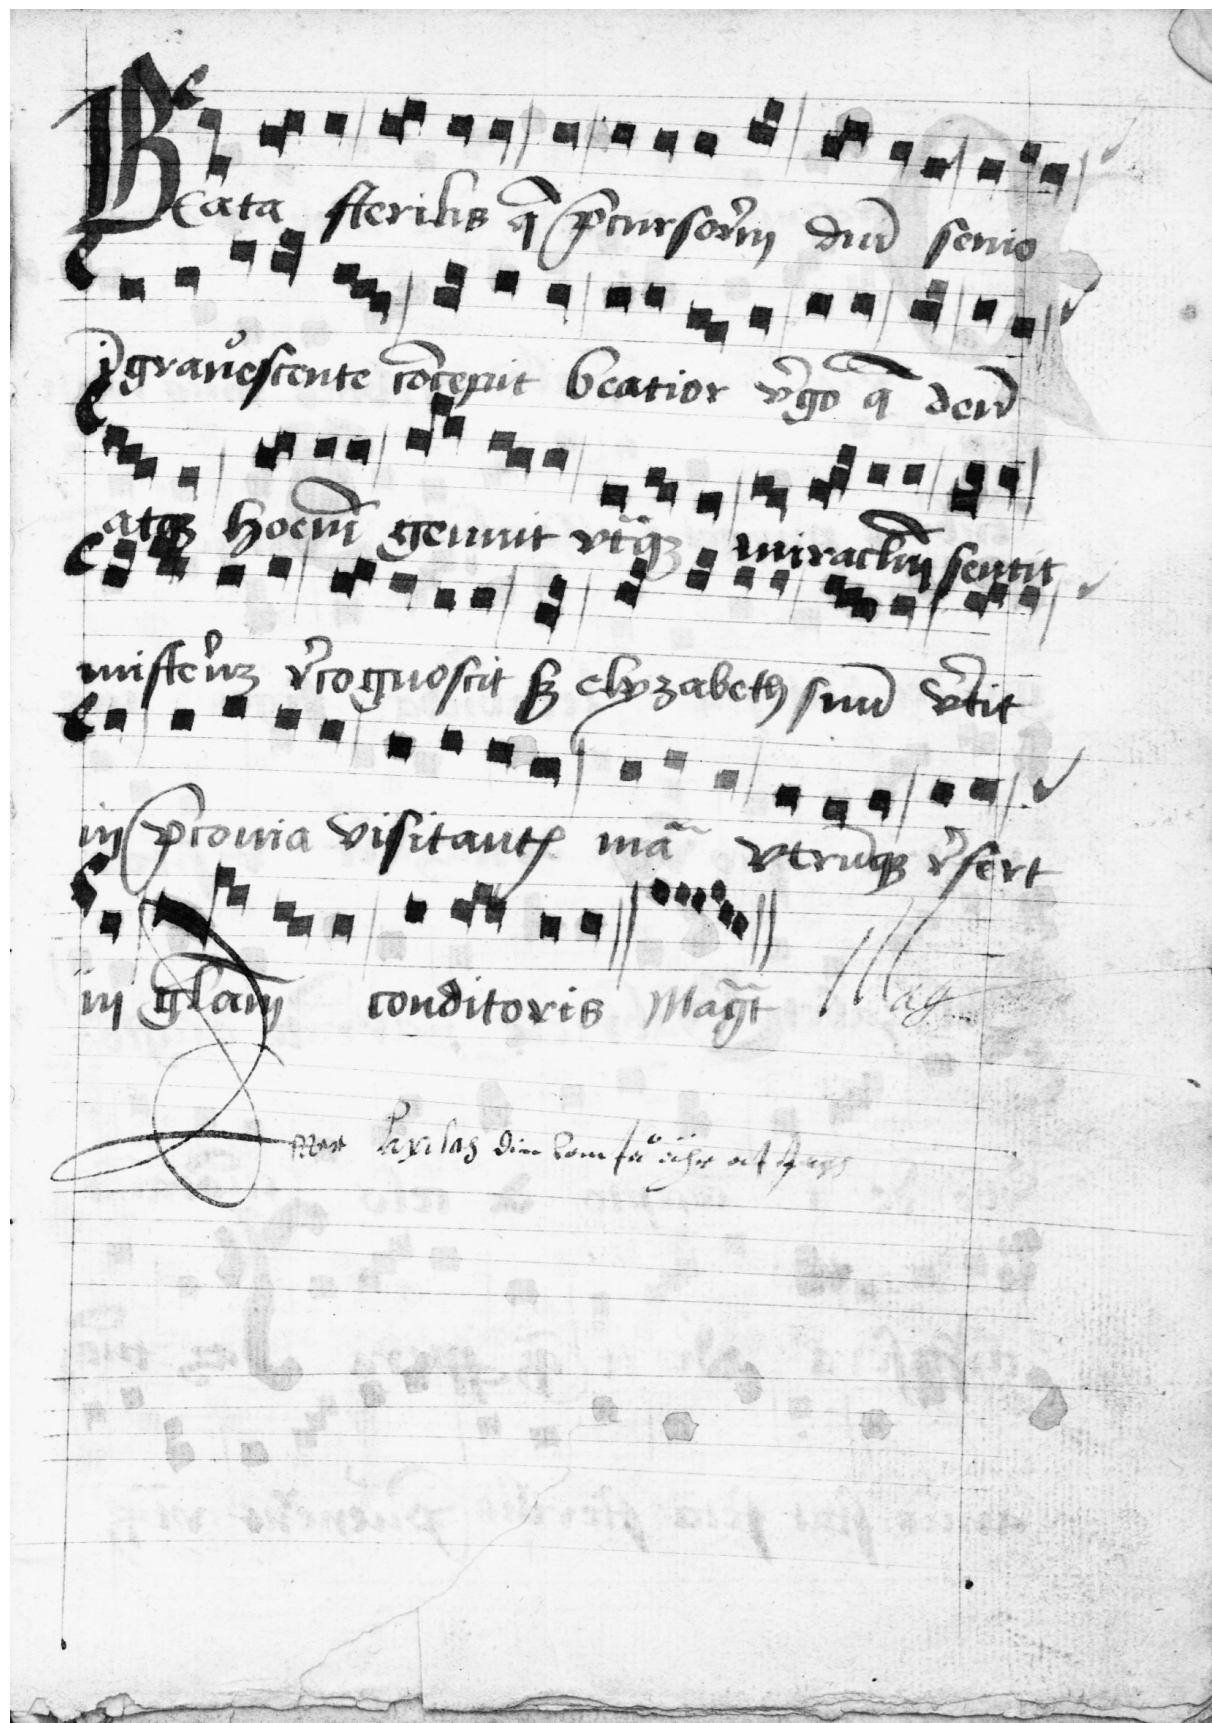 Beata sterilis q̄ p̄cursorē dū senio
īgravescente cōcepit beatior v̓go q̄ deū
atqꝫ hoēm genuit utͣqꝫ miraclm̄ sentit
misteriū rͤcognoscit sꝫ elyzabeth suū v̓tit
in p̄conia visitantꝭ mā utrūqꝫ rͤfert
in glam̄ conditoris Mag̅t Mag